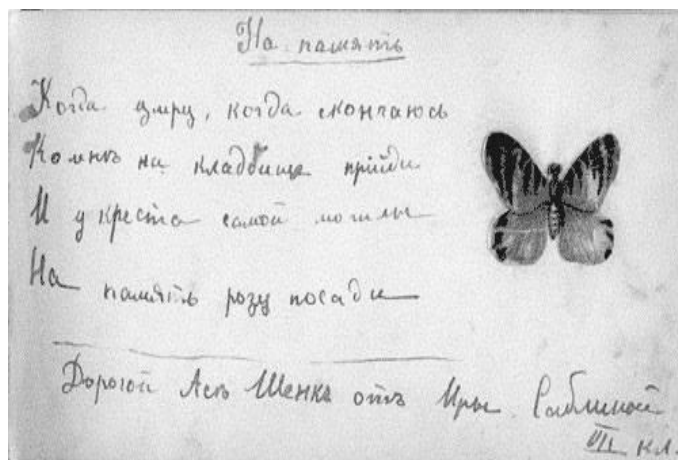 На память
Когда умру, когда скончаюсь
Ко мнѣ на кладбище прійди
И у креста самой могилы
На память розу посади
Дорогой Асѣ Шенкъ отъ Иры Саблиной
VII кл.